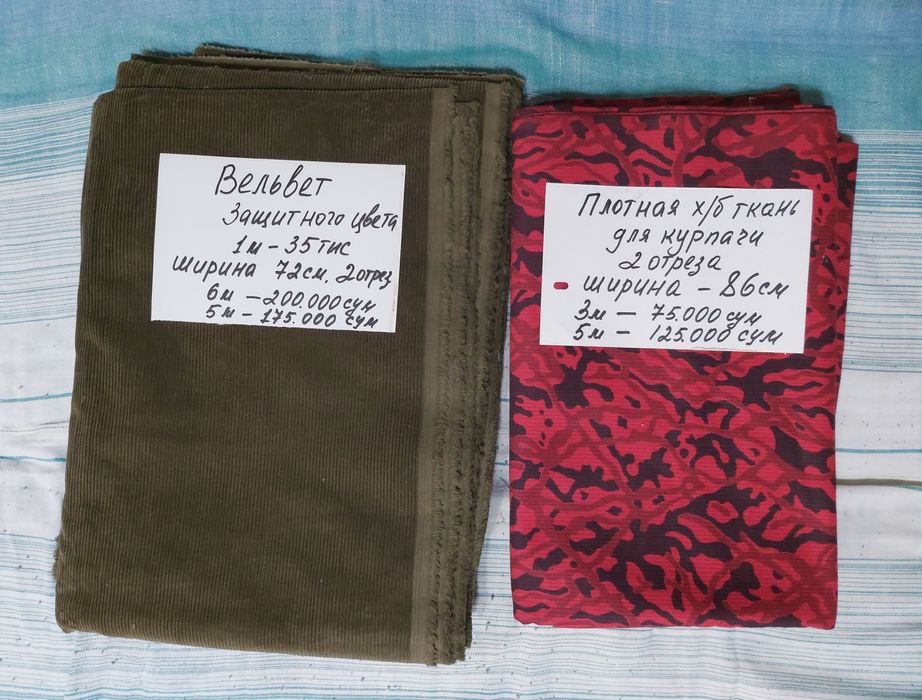 Вельвет
Защитного цвета
1м - 35тис
ширина 72см, 2отрез
6м - 200.000 сум
5м - 175.000 сум
Плотная х/б ткань
для курпачи
2 отреза
ширина - 86см
3м - 75.000 сум
5м - 125.000 сум